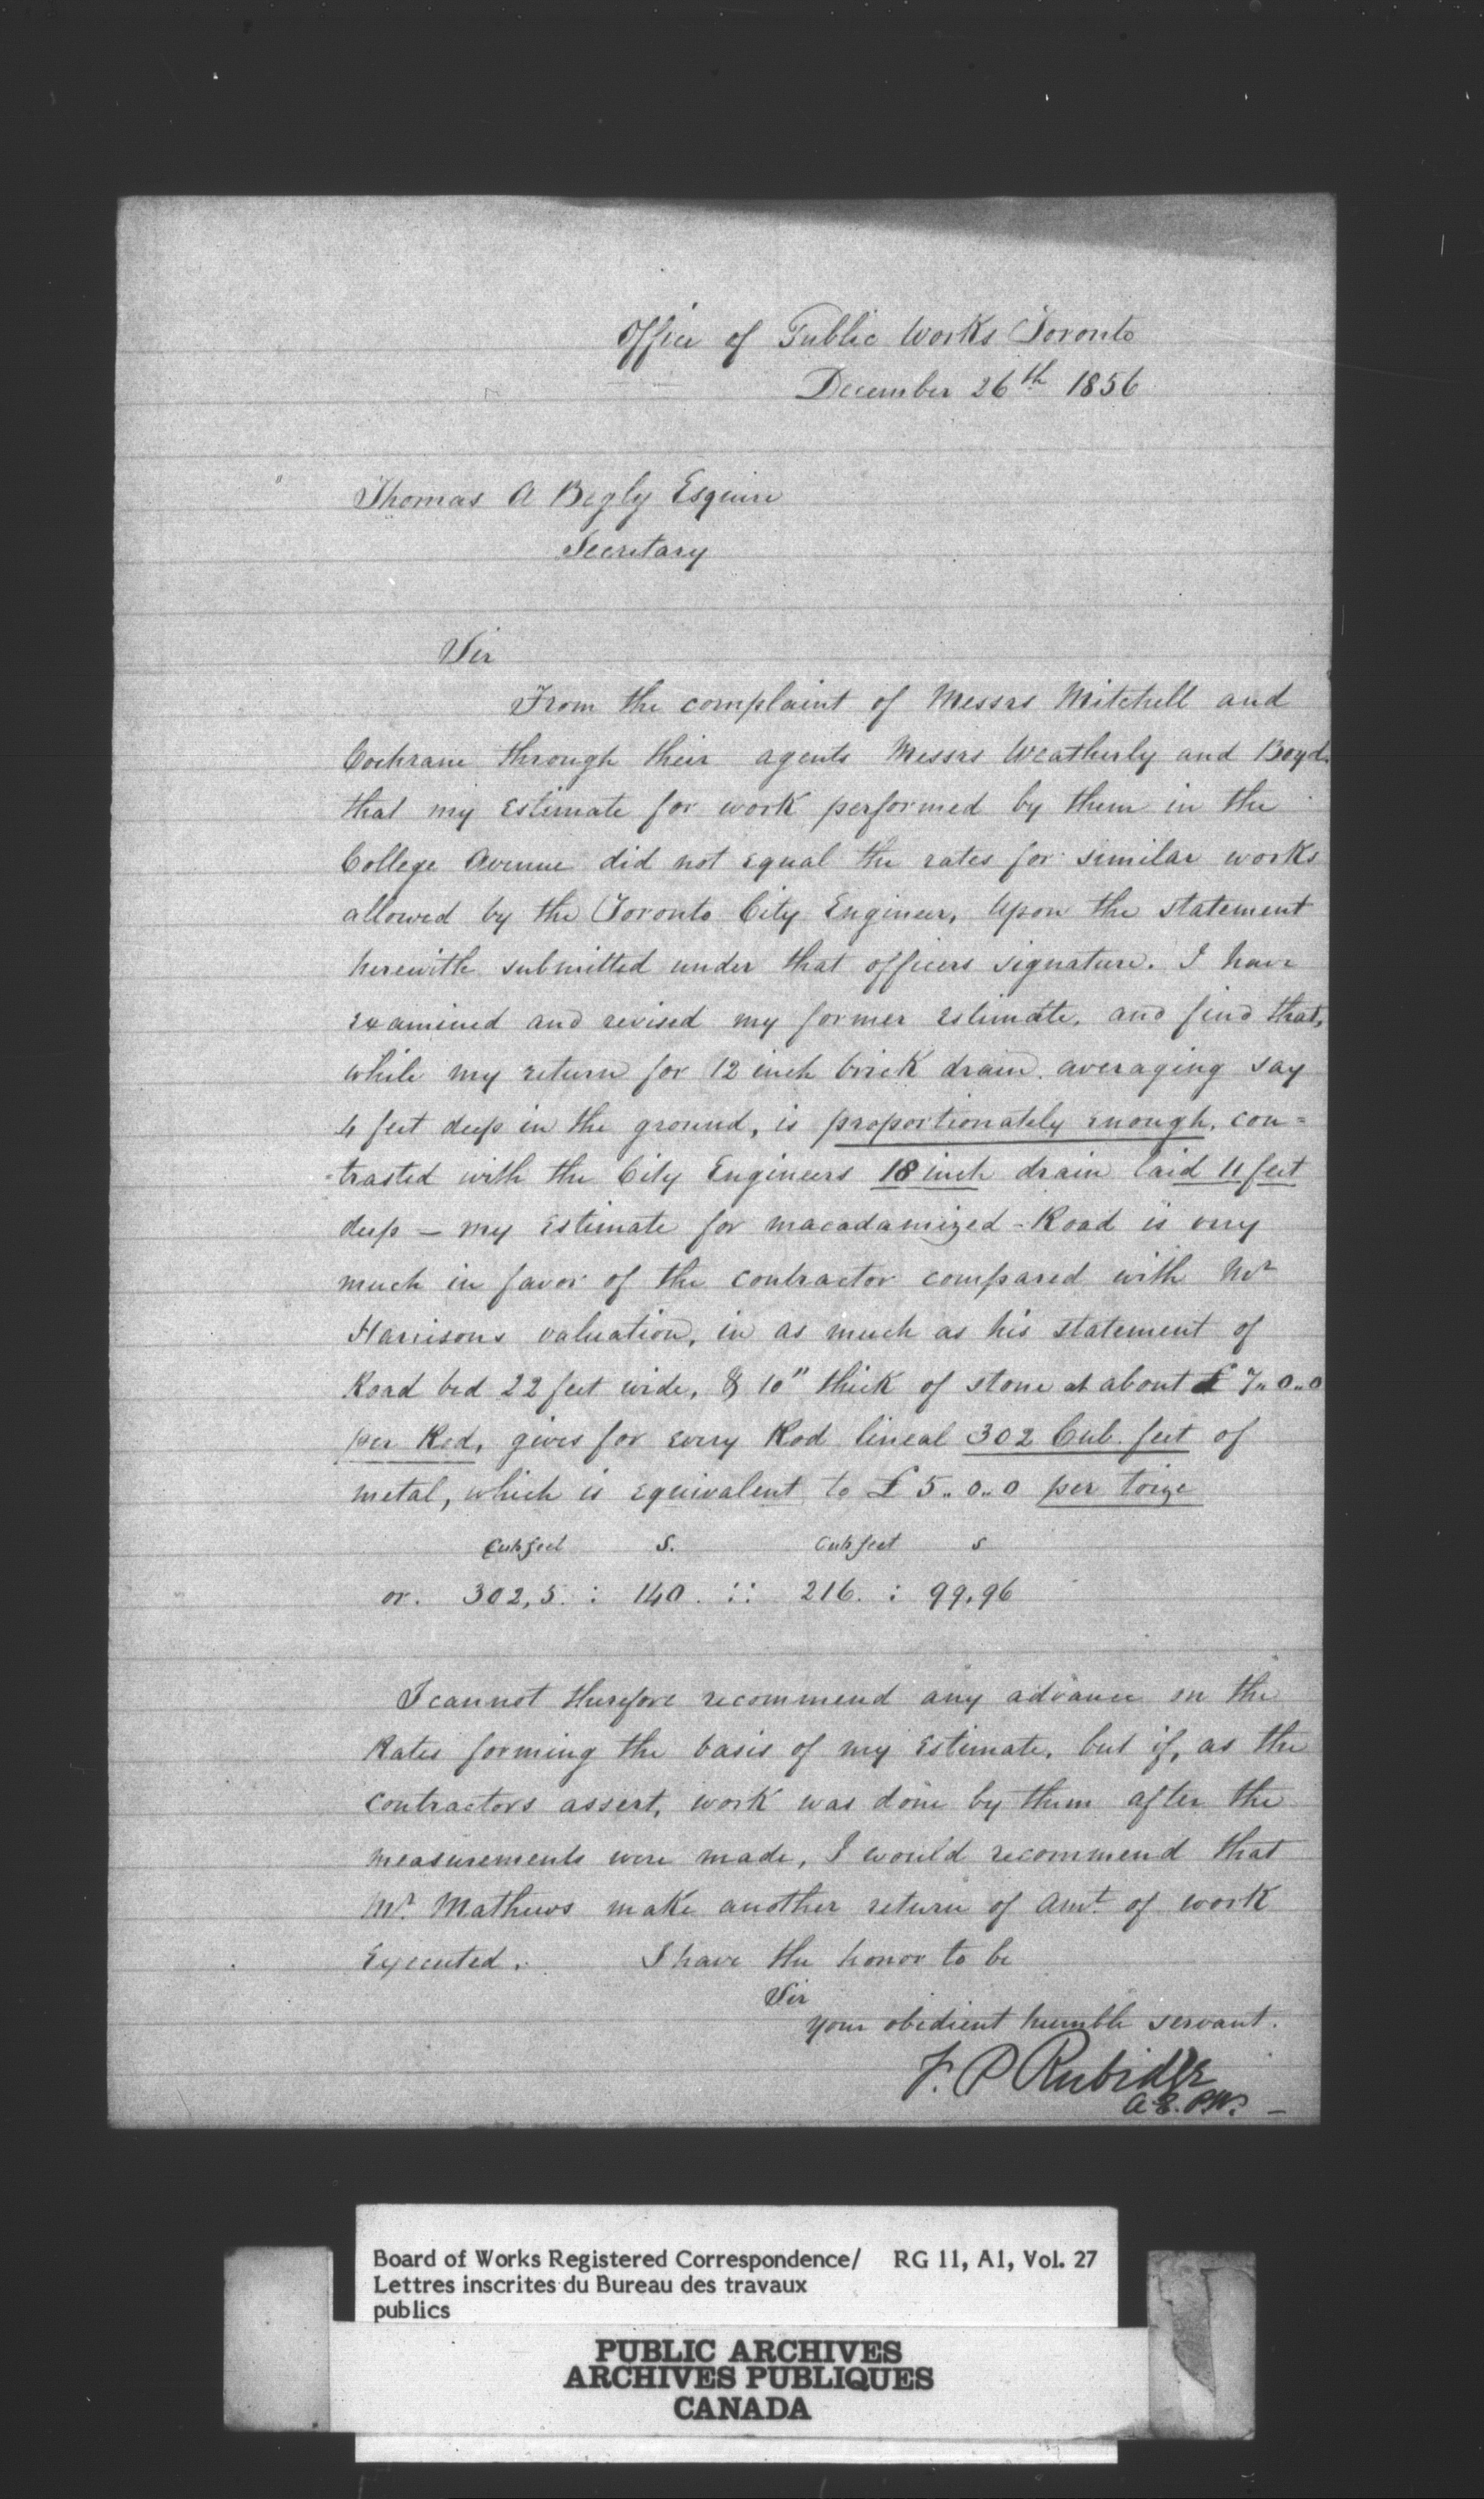 Office of Public Works Toronto
December 26th 1856
Thomas A Begly Esquire
Secretary
Sir
From the complaint of Messrs Mitchell and
Cochrane through their agents Messrs Weatherly and Boyd.
that my estimate for work performed by them in the
College Avenue did not equal the rates for similar works
allowed by the Toronto City Engineer, Upon the statement
herewith submitted under that officers signature. I have
examined and revised my former estimate, and find that,
while my return for 12 inch brick drain averaging say
4 feet deep in the ground, is proportionately enough, con=
-trasted with the City Engineers 18 inch drain laid 11 feet
deep — my estimate for macadamized-Road is very
much in favor of the contractor compared with Mr
Harrisons valuation, in as much as his statement of
Road bed 22 feet wide, & 10" thick of stone at about £7..0..0
per Rod, gives for every Rod lineal 302 Cub. feet of
metal, which is equivalent to £5..0..0 per toize
Cub feet S. Cub feet S
or. 302,5 : 140 :: 216 : 99.96
I cannot therefore recommend any advance on the
Rates forming the basis of my Estimate, but if, as the
contractors assert, work was done by them after the
measurements were made, I would recommend that
Mr. Mathews make another return of Amt. of work
Executed. I have the honor to be
Sir
your obedient humble servant.
F. P. Rubidge
A.E. P.W. —
Board of Works Registered Correspondence/ RG 11, A1, Vol. 27
Lettres inscrites du Bureau des travaux
publics
PUBLIC ARCHIVES
ARCHIVES PUBLIQUES
CANADA